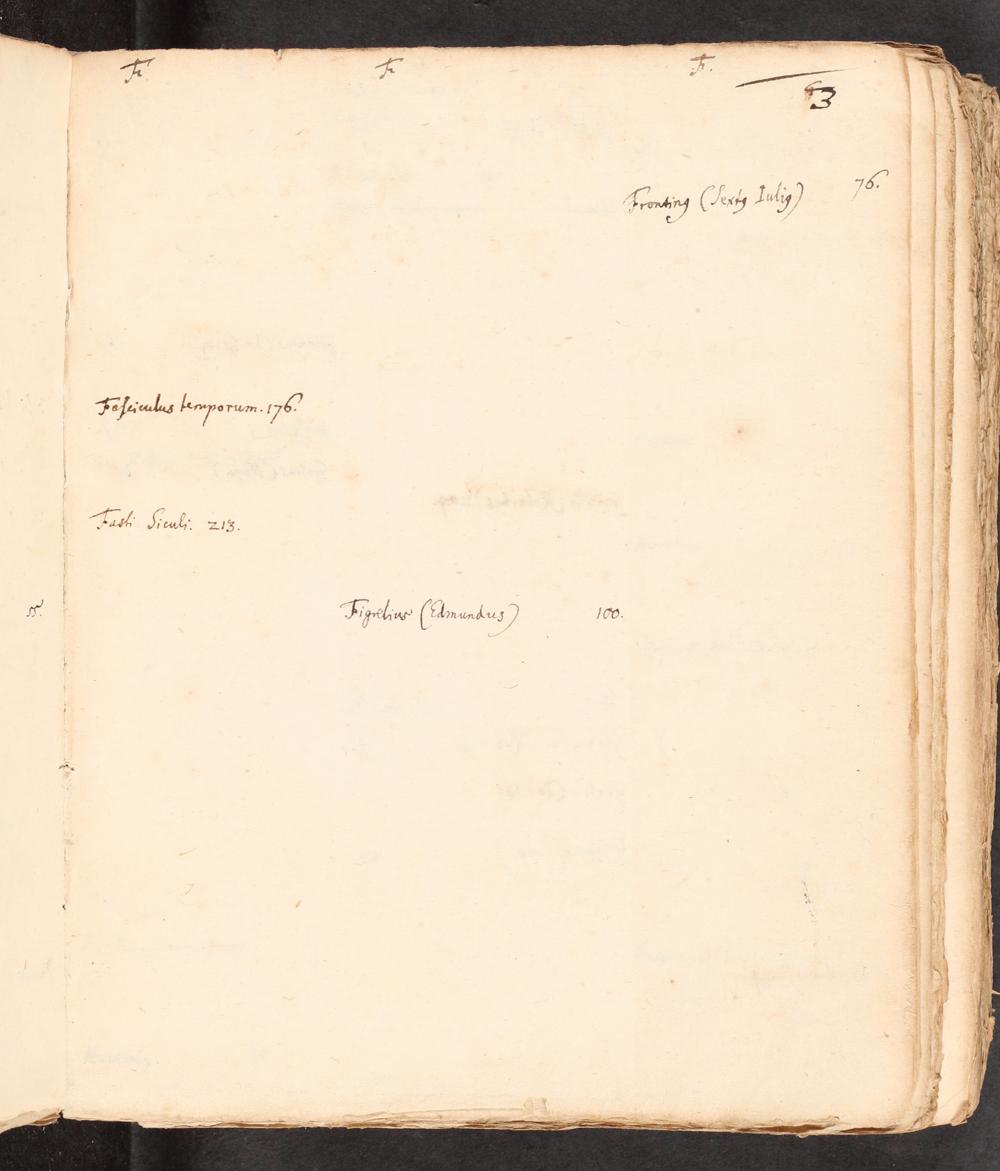 F F F.
3
Frontinꝰ (Sextꝰ Iuliꝰ) 76.
Fasciculus temporum. 176.
Fasti Siculi. 213.
Figrelius (Edmundus) 100.